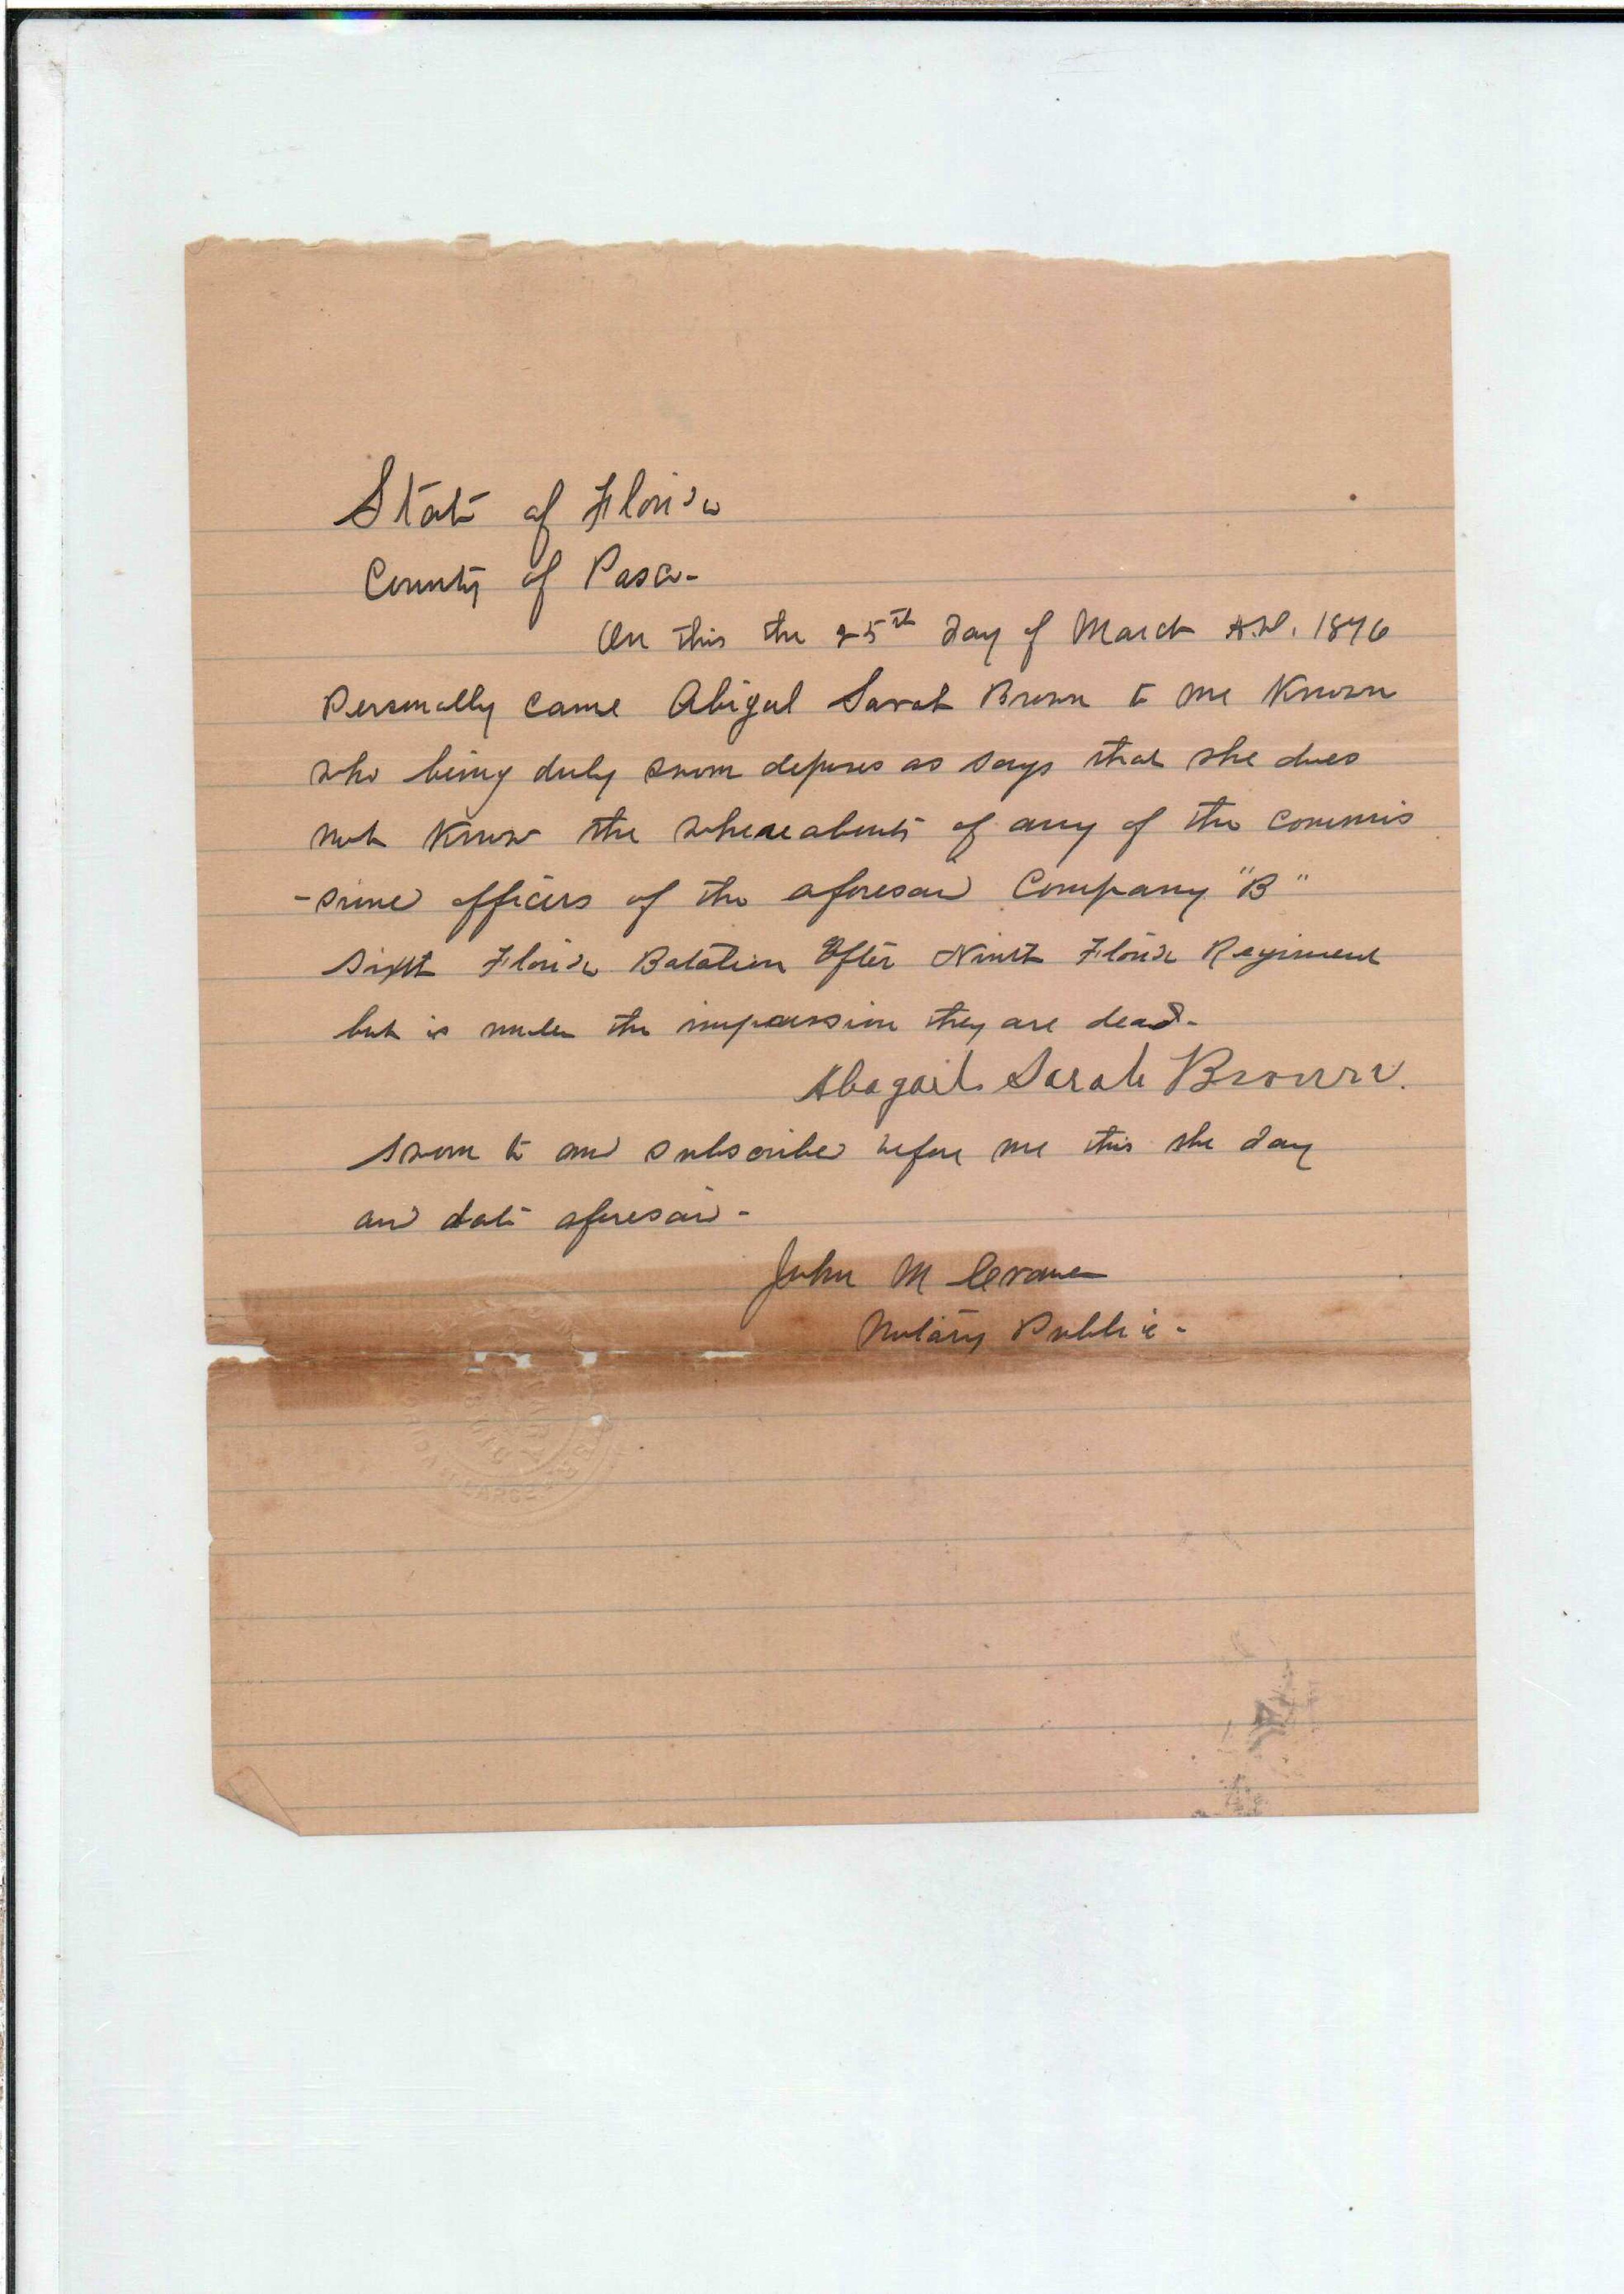 State of Florida
County of Pasco-
On this the 25th day of March A.D. 1896
Personally came Abigal Sarah Brown to me Known
who being duly sworn deposes as says that she does
not Know the whereabouts of any of the commis
-sioned officers of the aforesaid Company "B"
Sixth Florida Batalion After Ninth Florida Regiment
but is under the impression they are dead-
Abagail Sarah Brown.
Sworn to and subscribed before me this the day
and date aforesaid-
John M
Notary Public-